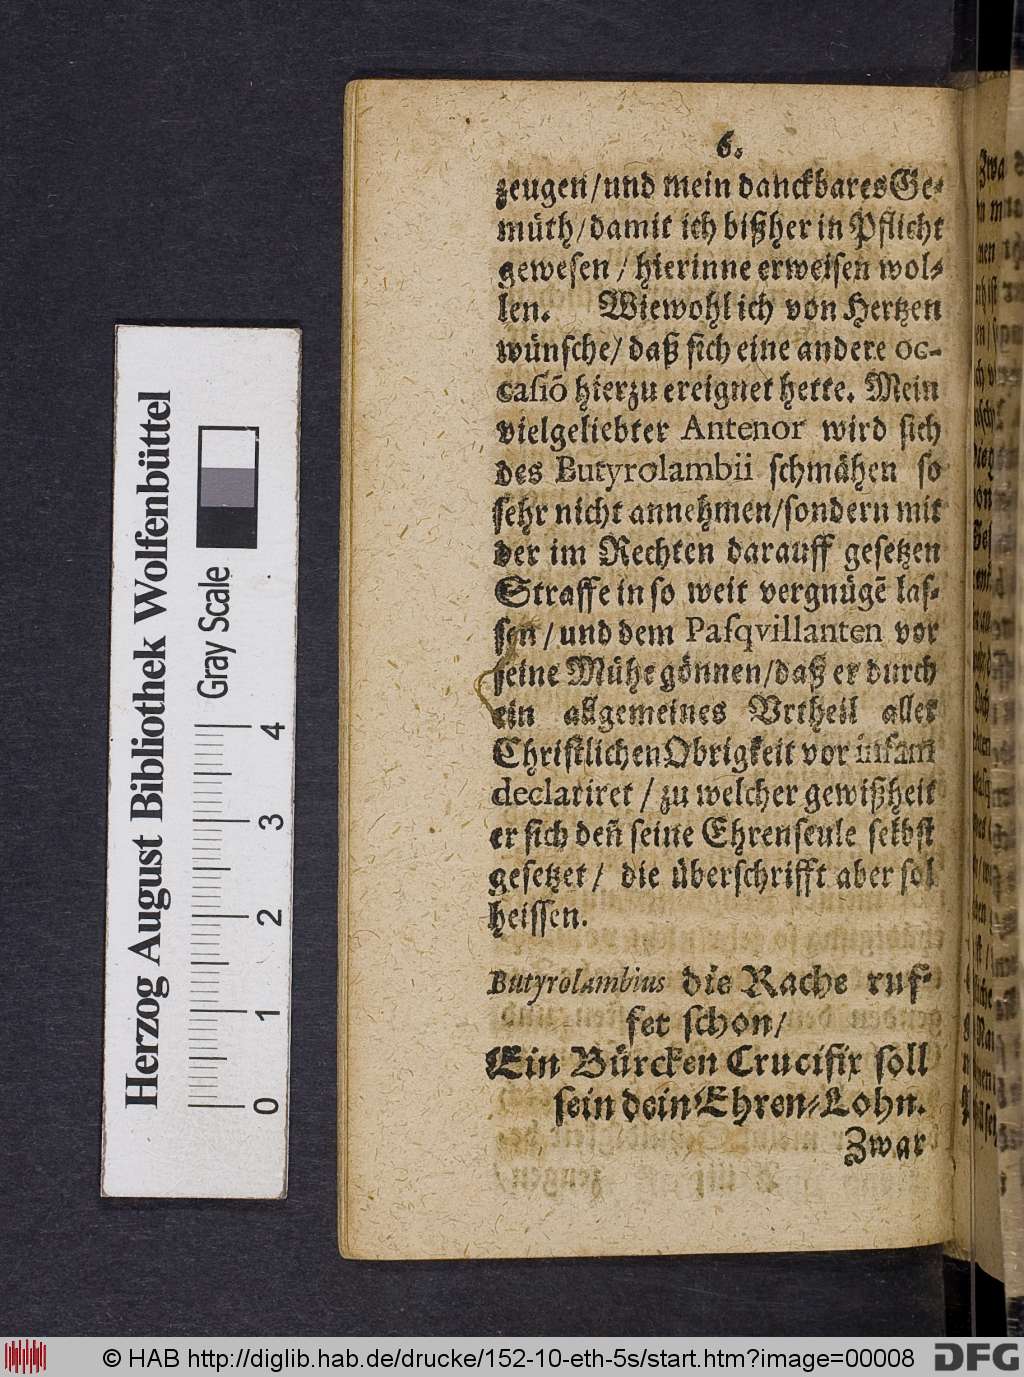 6.
zeugen/und mein danckbares Ge-
müth/damit ich bißher in Pflicht
gewesen/hierinne erweisen wol-
len. Wiewohl ich von Hertzen
wünsche/daß sich eine andere oc-
casiō hierzu ereignet hette. Mein
vielgeliebter Antenor wird sich
des Butyrolambii schmähen so
sehr nicht annehmen/sondern mit
der im Rechten darauff gesetzen
Straffe in so weit vergnügē las-
sen/und dem Pasqvillanten vor
seine Mühe gönnen/daß er durch
ein allgemeines Vrtheil aller
Christlichen Obrigkeit vor infam
declariret/zu welcher gewißheit
er sich deñ seine Ehrenseule selbst
gesetzet/ die überschrifft aber sol
heissen.
Butyrolambius die Rache ruf-
fet schon/
Ein Bürcken Crucifix soll
sein dein Ehren-Lohn.
Zwar
Herzog August Bibliothek Wolfenbüttel
Gray Scale
0 1 2 3 4
© HAB http://diglib.hab.de/drucke/152-10-eth-5s/start.htm?image=00008
DFG